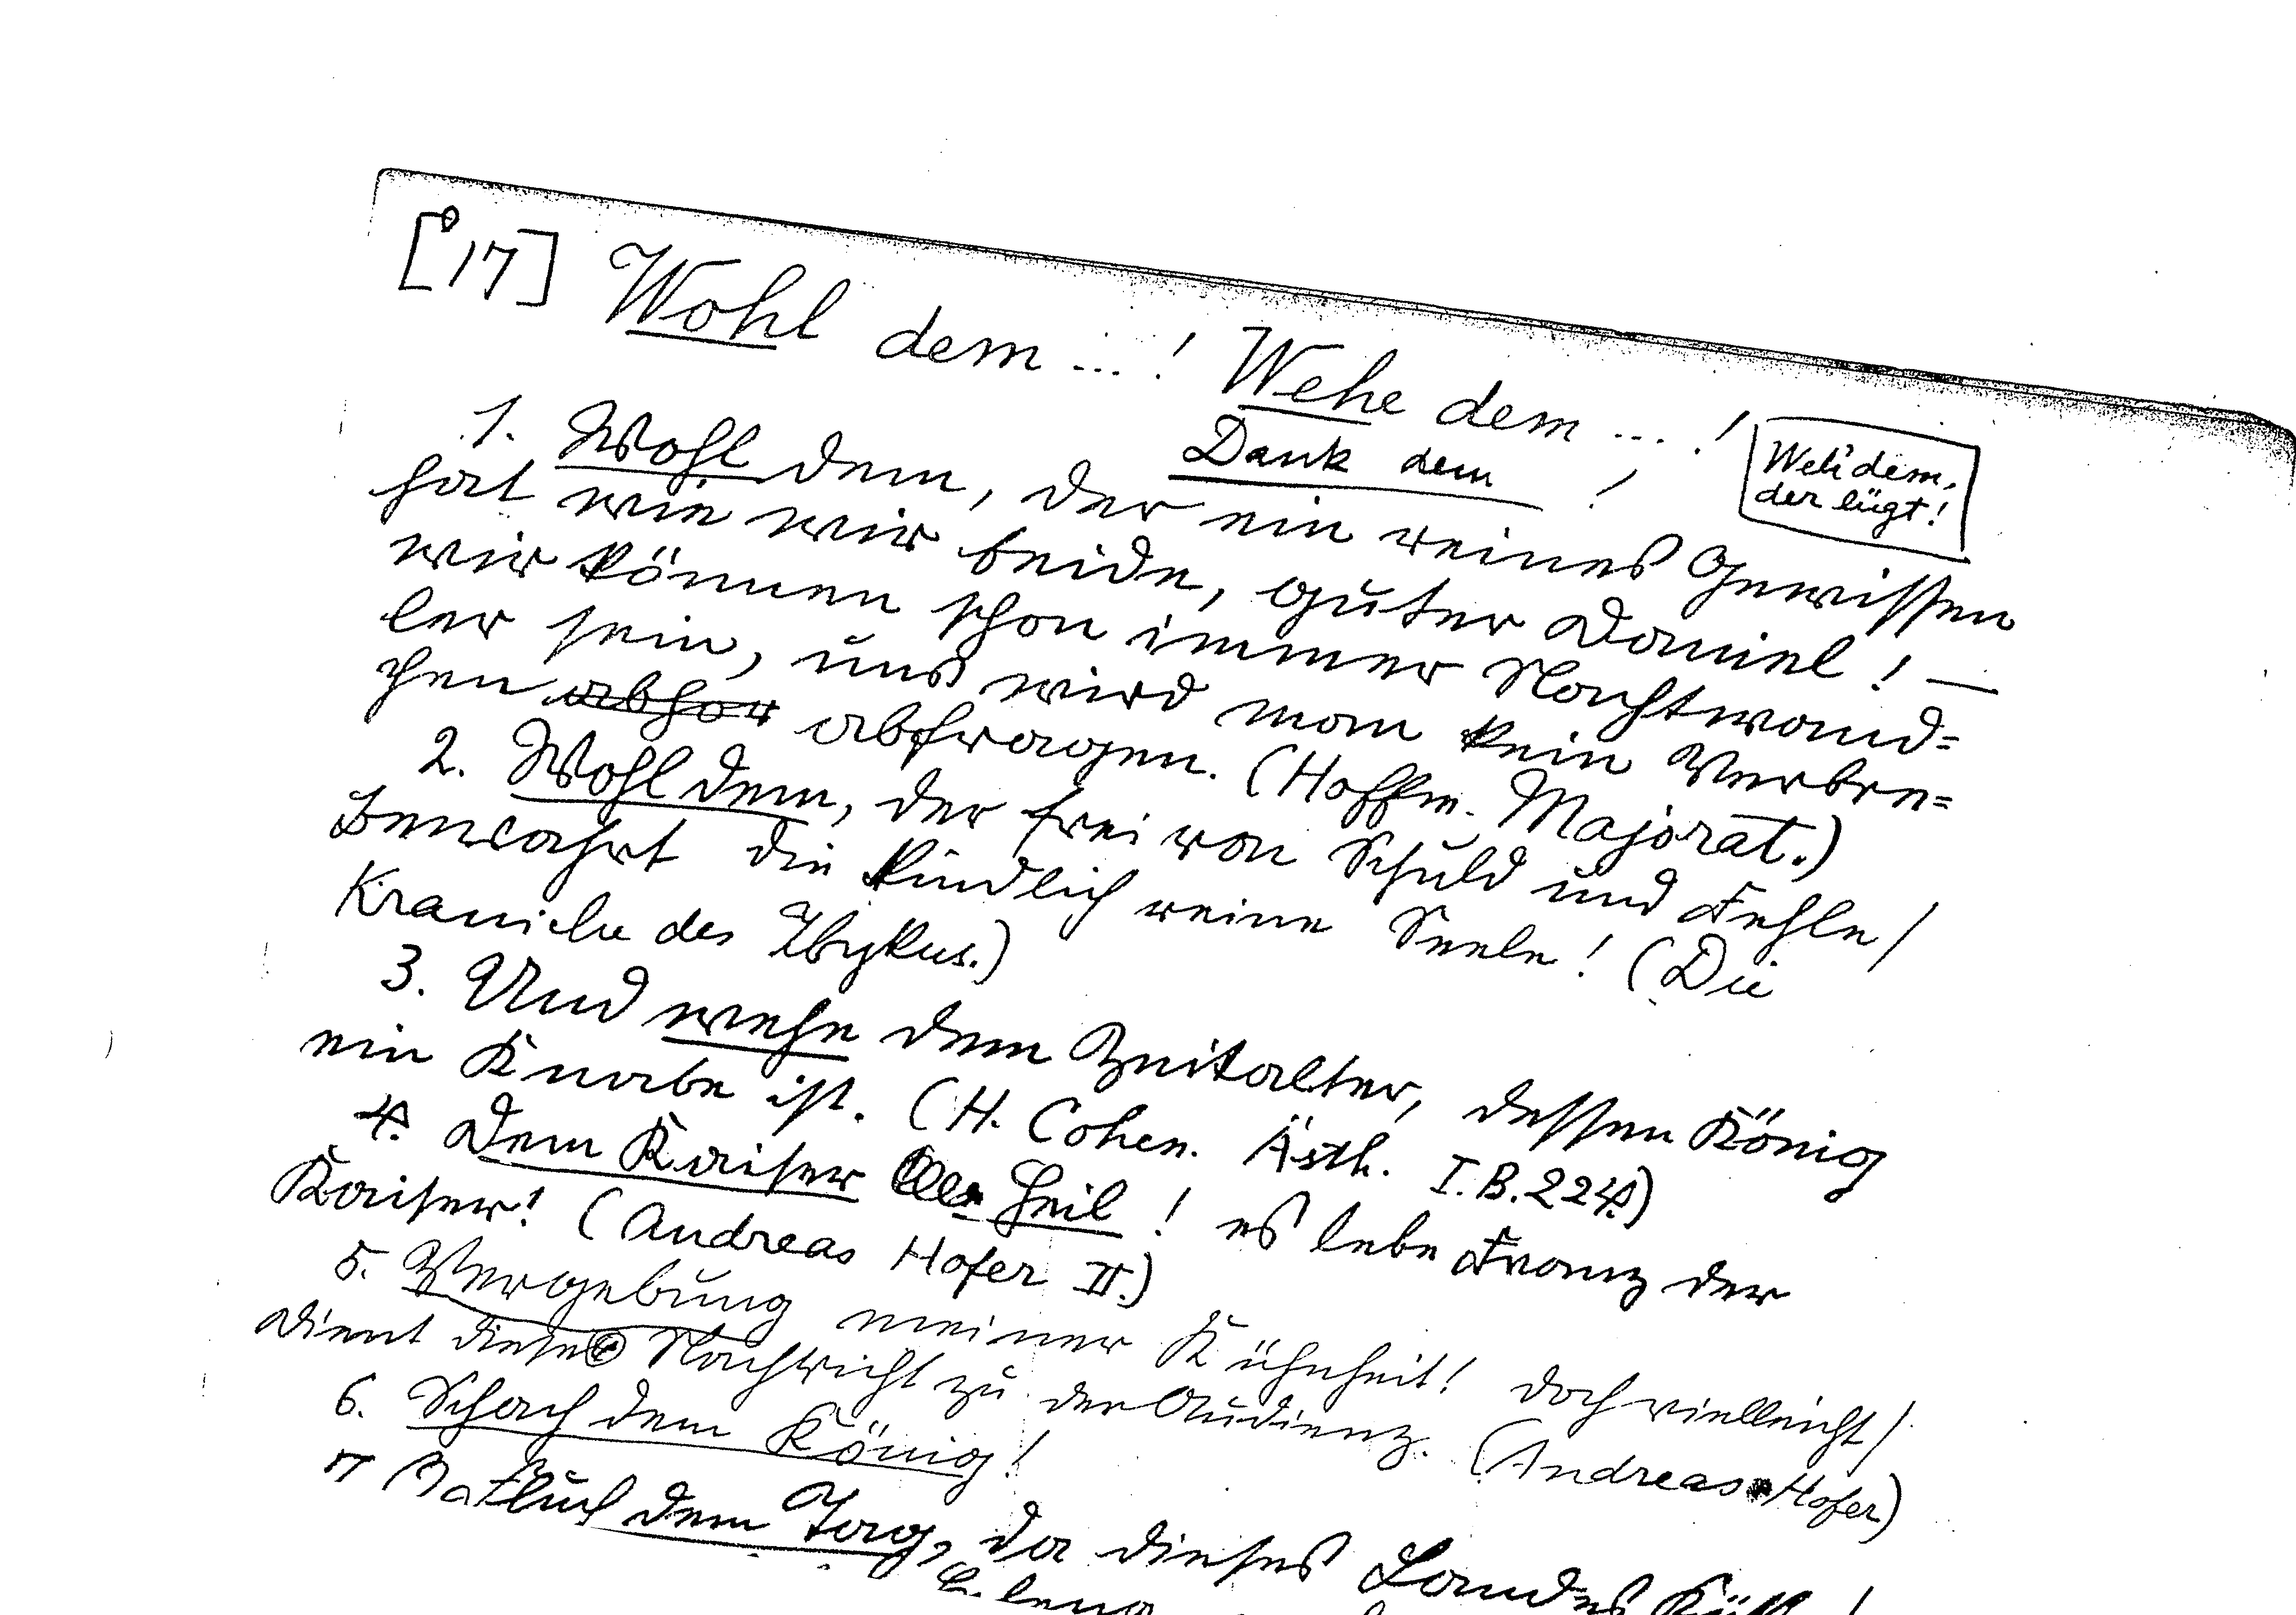 [17] Wohl dem ...! Wehe dem ...!
Dank dem !
Weh' dem,
der lügt!
1. Wohl dem, der ein reines Gewissen
hat wie wir beide, guter Daniel! —
wir können schon immer Nachtwand=
ler sein, uns wird man kein Verbre=
chen abhor abfragen. (Hoffm. Majorat.)
2. Wohl dem, der frei von Schuld und Fehle /
Bewahrt die kindlich reine Seele! (Die
Kraniche des Ibykus.)
3. Und wehe dem Zeitalter, dessen König
ein Knabe ist. (H. Cohen. Ästh. I. B. 224.)
4. Dem Kaiser Heil! es lebe Franz der
Kaiser! (Andreas Hofer II.)
5. Vergebung meiner Kühnheit! doch vielleicht /
Dient diese Nachricht zu der Audienz. (Andreas Hofer)
6. Schach dem König!
7 Fluch dem Tag, da dieses Landes